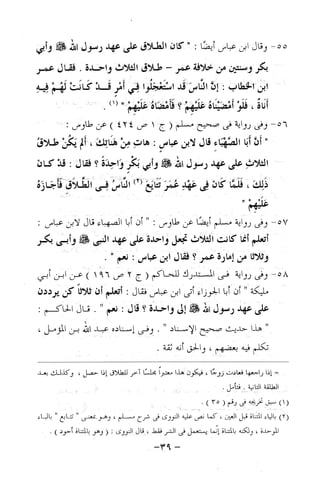 ٥٥ - وقال ابن عباس أيضًا : " كان الطلاق على عهد رسول الله ﷺ وأبي
بكر وسنتين من خلافة عمر - طلاق الثلاث واحدة . فقال عمر
ابن الخطاب : إِنَّ النَّاسَ قَد اسْتَعْجَلُوا فِي أَمْرٍ قَدْ كَانَتْ لَهُمْ فِيهِ
أَنَاةٌ ، فَلَوْ أَمْضَيْنَاهُ عَلَيْهِمْ ؟ فَأَمْضَاهُ عَلَيْهِمْ " (١) .
٥٦ - وفى رواية فى صحيح مسلم ( ج ١ ص ٤٢٤ ) عن طاوس :
" أَنَّ أَبَا الصَّهْبَاءِ قَال لابن عباس : هَاتِ مِنْ هَنَاتِكَ ، أَلَمْ يَكُنْ طَلاقُ
الثلاثِ على عهد رسول الله ﷺ وأبي بكر وَاحِدَةً ؟ فقال : قَدْ كَانَ
ذَلِكَ ، فَلَمَّا كَانَ فِى عَهْدِ عُمَرَ تَتَايَعَ (٢) النَّاسُ فِى الطَّلاقِ فَأَجَازَهُ
عَلَيْهِمْ "
٥٧ - وفى رواية مسلم أيضًا عن طاوس : " أن أبا الصهباء قال لابن عباس :
أتعلم أنما كانت الثلاث تجعل واحدة على عهد النبى ﷺ وأبى بكر
وثلاثا من إمارة عمر ؟ فقال ابن عباس : نعم " .
٥٨ - وفى رواية فى المستدرك للحاكم ( ج ٢ ص ١٩٦ ) عن ابن أبي
مليكة " أن أبا الجوزاء أتى ابن عباس فقال : أتعلم أن ثلاثاً كن يرددن
على عهد رسول الله ﷺ إلى واحدة ؟ قال : نعم " . قال الحاكم :
" هذا حديث صحيح الإسناد " . وفى إسناده عبد الله بن المؤمل ،
تكلم فيه بعضهم ، والحق أنه ثقة .
= إذا راجعها فعادت زوجًا ، فيكون هذا معتبراً مجلسًا آخر للطلاق إذا حصل ، وكذلك بعد
الطلقة الثانية . فتأمل .
(١) سبق تخريجه فى رقم ( ٣٥ ) .
(٢) بالياء المثناة قبل العين ، كما نص عليه النووى فى شرح مسلم ، وهو بمعنى " تتابع " بالباء
الموحدة ، ولكنه بالمثناة إنما يستعمل فى الشر فقط ، قال النووى : ( وهو بالمثناة أجود ) .
- ٣٩ -